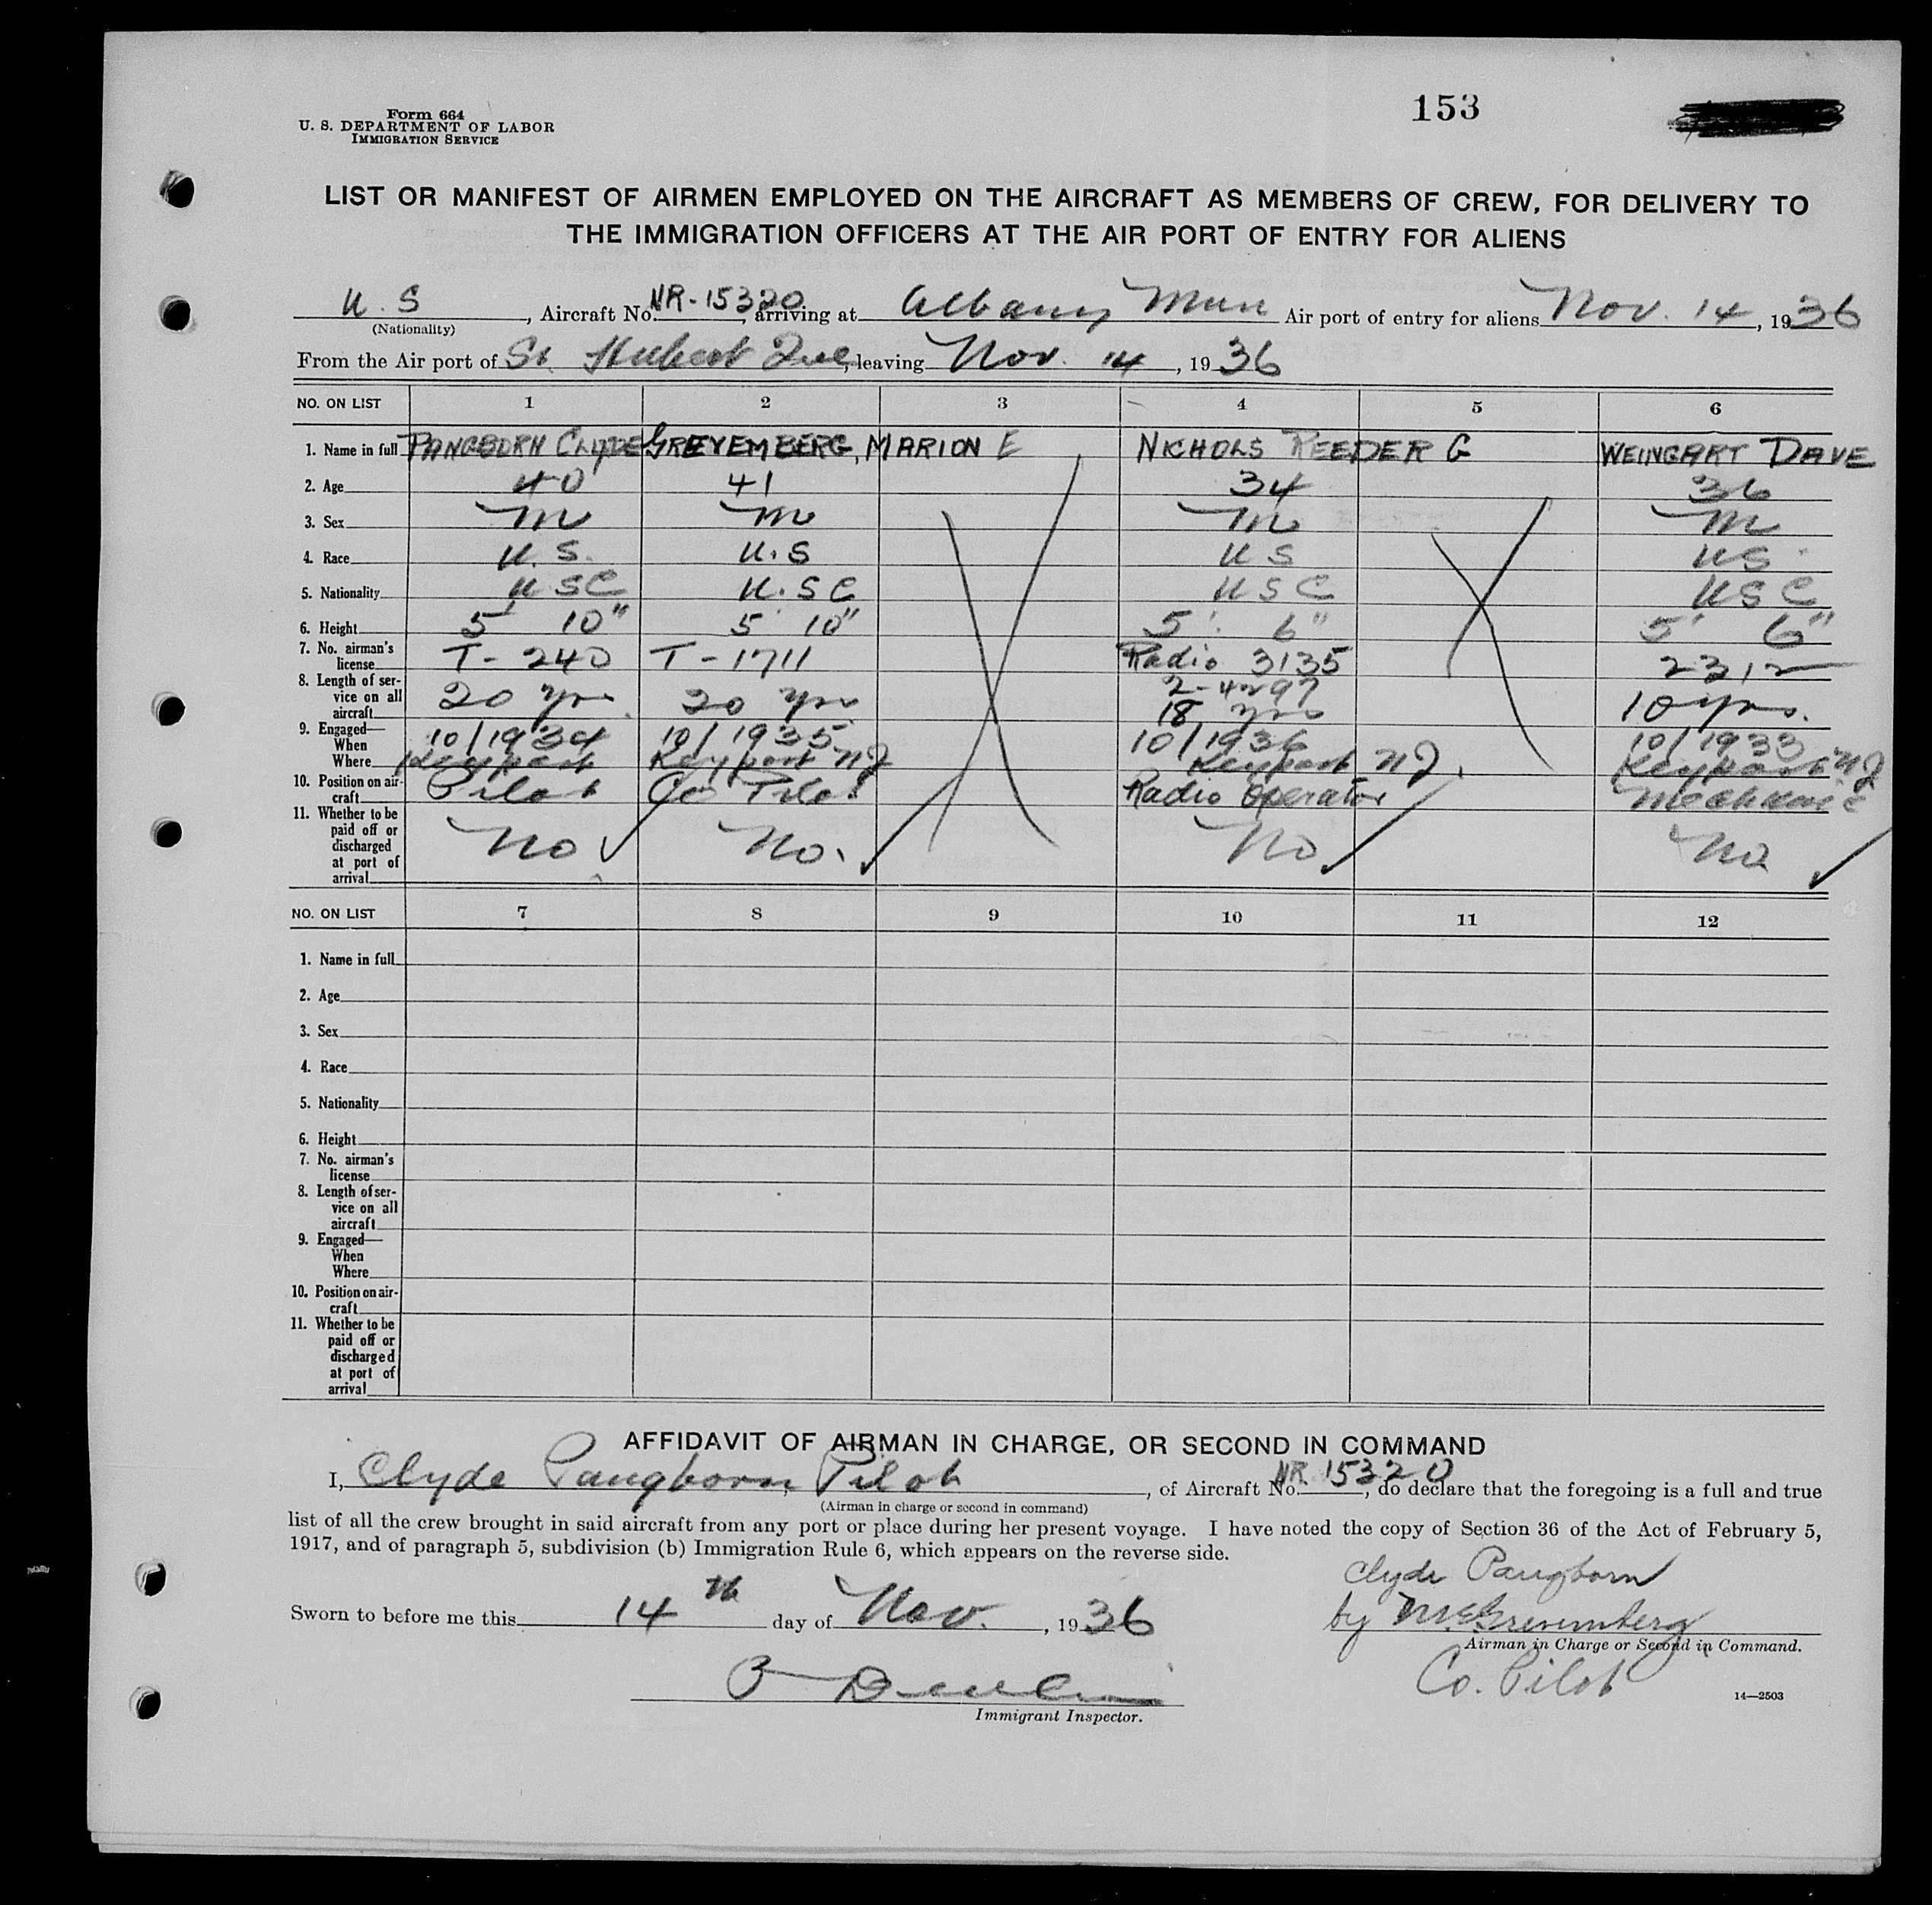 153
Form 664
U. S. DEPARTMENT OF LABOR
IMMIGRATION SERVICE
LIST OR MANIFEST OF AIRMEN EMPLOYED ON THE AIRCRAFT AS MEMBERS OF CREW, FOR DELIVERY TO
THE IMMIGRATION OFFICERS AT THE AIR PORT OF ENTRY FOR ALIENS
U. S, Aircraft No. NR-15320, arriving at Albany Mun Air port of entry for aliens Nov. 14, 1936
(Nationality)
From the Air port of St. Hubert Que, leaving Nov. 14, 1936
NO. ON LIST 1 2 3 4 5 6
1. Name in full PANGBORN CLYDE GREVEMBERG, MARION E NICHOLS REEDER G WEINGART DAVE
2. Age 40 41 34 36
3. Sex M M M M
4. Race U. S. U. S U S U S
5. Nationality U S C U. S C U S C U S C
6. Height 5' 10" 5' 10" 5' 6" 5' 6"
7. No. airman's license T-240 T-1711 Radio 3135 2312
8. Length of service on all aircraft 20 yrs 20 yrs 18 yrs 10 yrs.
9. Engaged— When 10/1934 10/1935 10/1936 10/1933
Where Keyport Keyport NJ Keyport NJ. Keyport NJ
10. Position on aircraft Pilot Co Pilot Radio Operator Mechanic
11. Whether to be paid off or discharged at port of arrival No No. No No
NO. ON LIST 7 8 9 10 11 12
1. Name in full
2. Age
3. Sex
4. Race
5. Nationality
6. Height
7. No. airman's license
8. Length of service on all aircraft
9. Engaged— When
Where
10. Position on aircraft
11. Whether to be paid off or discharged at port of arrival
AFFIDAVIT OF AIRMAN IN CHARGE, OR SECOND IN COMMAND
I, Clyde Pangborn, Pilot, of Aircraft No. NR. 15320, do declare that the foregoing is a full and true
(Airman in charge or second in command)
list of all the crew brought in said aircraft from any port or place during her present voyage. I have noted the copy of Section 36 of the Act of February 5,
1917, and of paragraph 5, subdivision (b) Immigration Rule 6, which appears on the reverse side.
Clyde Pangborn
Sworn to before me this 14th day of Nov., 1936
by M E Grevemberg
Airman in Charge or Second in Command.
Co. Pilot
Immigrant Inspector.
14—2503